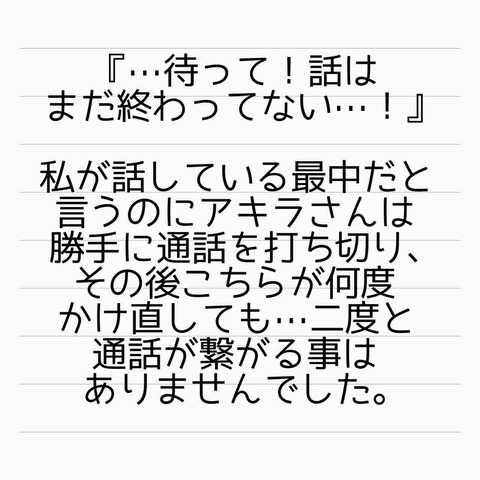 『…待って！話は
まだ終わってない…！』
私が話している最中だと
言うのにアキラさんは
勝手に通話を打ち切り、
その後こちらが何度
かけ直しても…二度と
通話が繋がる事は
ありませんでした。